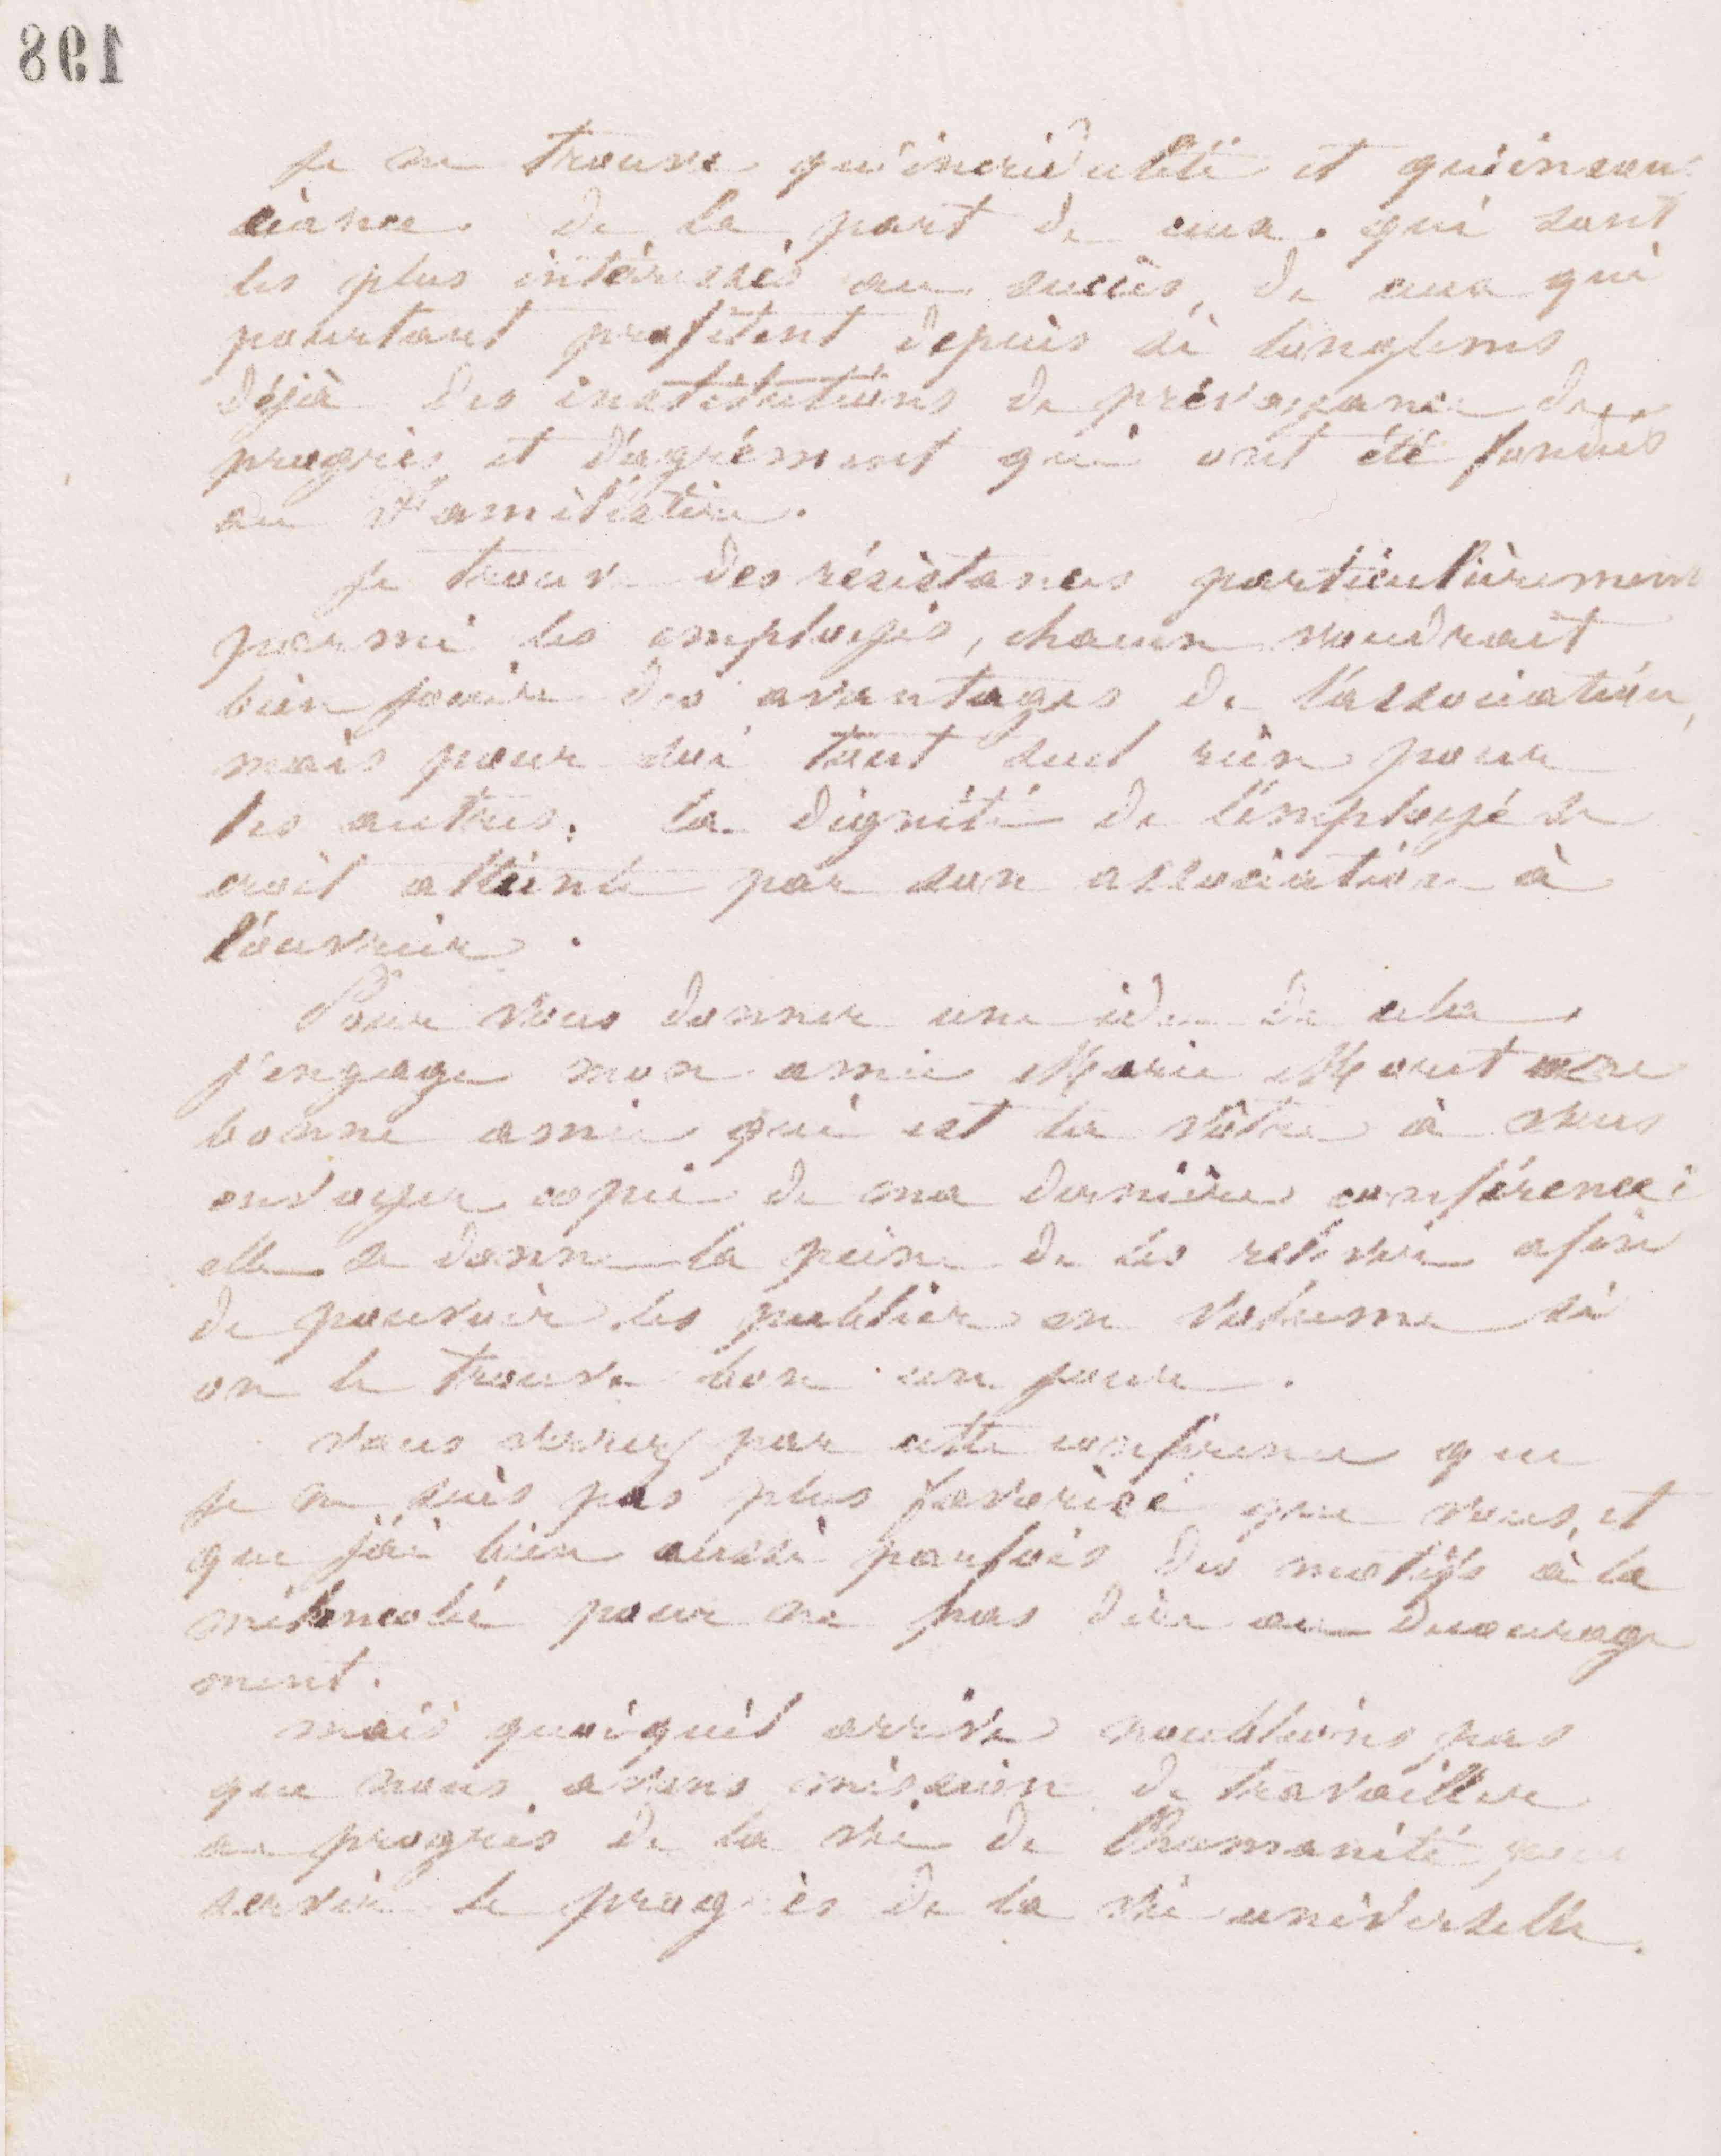 198
je ne trouve qu'incrédulité et qu'insou
ciance de la part de ceux qui sont
les plus intéressés au succès, de ceux qui
pourtant profitent depuis si longtems
déjà des institutions de prévoyance de
progrès et d'agrément qui ont été fondés
au Familistère.
je trouve des résistances particulièrement
parmi les employés, chacun voudrait
bien jouir des avantages de l'association,
mais pour soi tout seul rien pour
les autres. la dignité de l'employé se
croit atteinte par son association à
l'ouvrier.
Pour vous donner une idée de cela
j'engage mon amie Marie Moret
bonne amie qui est la vôtre à vous
envoyer copie de ma dernière conférence
elle se donne la peine de les relever afin
de pouvoir les publier en volume si
on le trouve bon un jour.
vous verrez par cette conférence que
je ne suis pas plus favorisé que vous, et
que j'ai bien aussi parfois des motifs à la
mélancolie pour ne pas dire au décourage
ment.
mais quoiqu'il arrive n'oublions pas
que nous avons mission de travailler
au progrès de la vie de l'humanité pour
servir le progrès de la vie universelle.